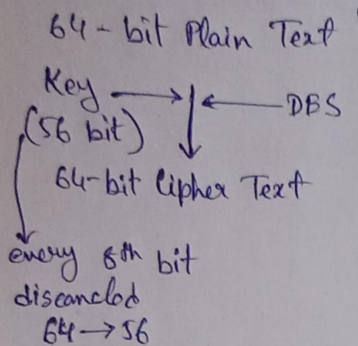 64-bit Plain Text
Key → ← DES
(56 bit)
64-bit Cipher Text
every 8th bit
discarded
64→56